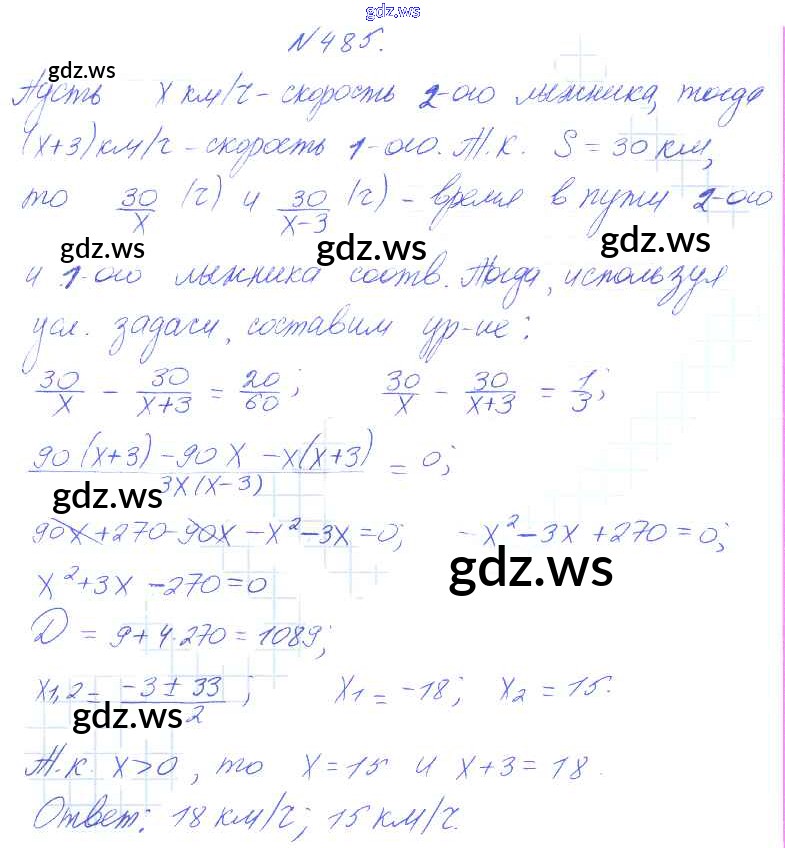 gdz.ws
N 485.
gdz.ws
Пусть x км/ч - скорость 2-ого лыжника, тогда
(x+3) км/ч - скорость 1-ого. Т.к. S = 30 км,
то 30/x (ч) и 30/(x-3) (ч) - время в пути 2-ого
gdz.ws gdz.ws gdz.ws
и 1-ого лыжника соотв. Тогда, используя
усл. задачи, составим ур-ие:
30/x - 30/(x+3) = 20/60; 30/x - 30/(x+3) = 1/3;
(90(x+3) - 90x - x(x+3))/(3x(x-3)) = 0;
gdz.ws
90x + 270 - 90x - x² - 3x = 0; -x² - 3x + 270 = 0;
gdz.ws
x² + 3x - 270 = 0
D = 9 + 4·270 = 1089;
x1,2 = (-3 ± 33)/2; x1 = -18; x2 = 15.
gdz.ws
Т.к. x>0, то x = 15 и x+3 = 18.
Ответ: 18 км/ч; 15 км/ч.